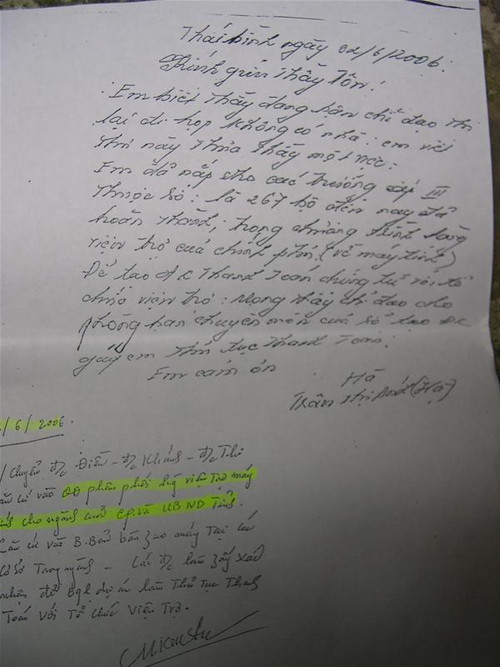 Thái bình ngày 02/6/2006.
Kính gửi Thầy Tôn!
Em biết Thầy đang bận chỉ đạo thi
lại đi họp không có nhà: em viết
thư này Thưa Thầy một việc:
Em đã nắp cho các trường cấp III
Thuộc Sở: là 267 bộ đến nay đã
hoàn Thành, trong chương trình hàng
viện trợ của chính phủ (về máy tính)
Để tạo đ/k Thanh Toán chứng từ với tổ
chức viện trợ: Mong thầy chỉ đạo cho
phòng ban chuyên môn của Sở tạo đ/k
giúp em Thủ tục Thanh Toán:
Em cảm ơn
Hà
Trần Thị
/6/2006.
/Chuyển đ/c Điền - đ/c Khánh - đ/c Thi
căn cứ vào QĐ phân phối hàng viện trợ máy
cho ngành của CP. và UBND Tỉnh.
Căn cứ và B.Bản bàn giao máy Tại các
cơ sở Trong ngành - Các đ/c làm giấy xác
nhận để Bql dự án làm Thủ Tục Thanh
Toán với Tổ chức Viện Trợ.